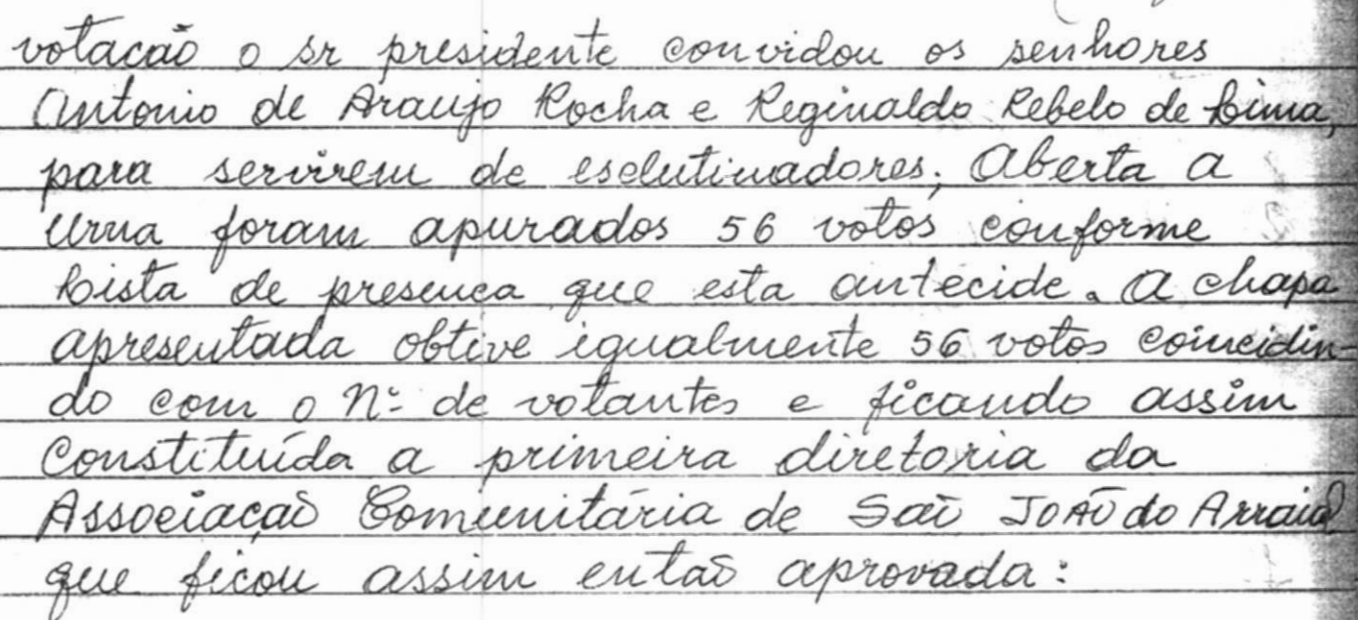 votação o sr presidente convidou os senhores
Antonio de Araujo Rocha e Reginaldo Rebelo de Lima,
para servirem de esclutinadores; Aberta a
Urna foram apurados 56 votos conforme
Lista de presenca que esta antecide. A chapa
apresentada obtive igualmente 56 votos coincidin-
do com o Nº de votantes e ficando assim
Constituída a primeira diretoria da
Associação Comunitária de São JOÃO do Arraial
que ficou assim então aprovada: